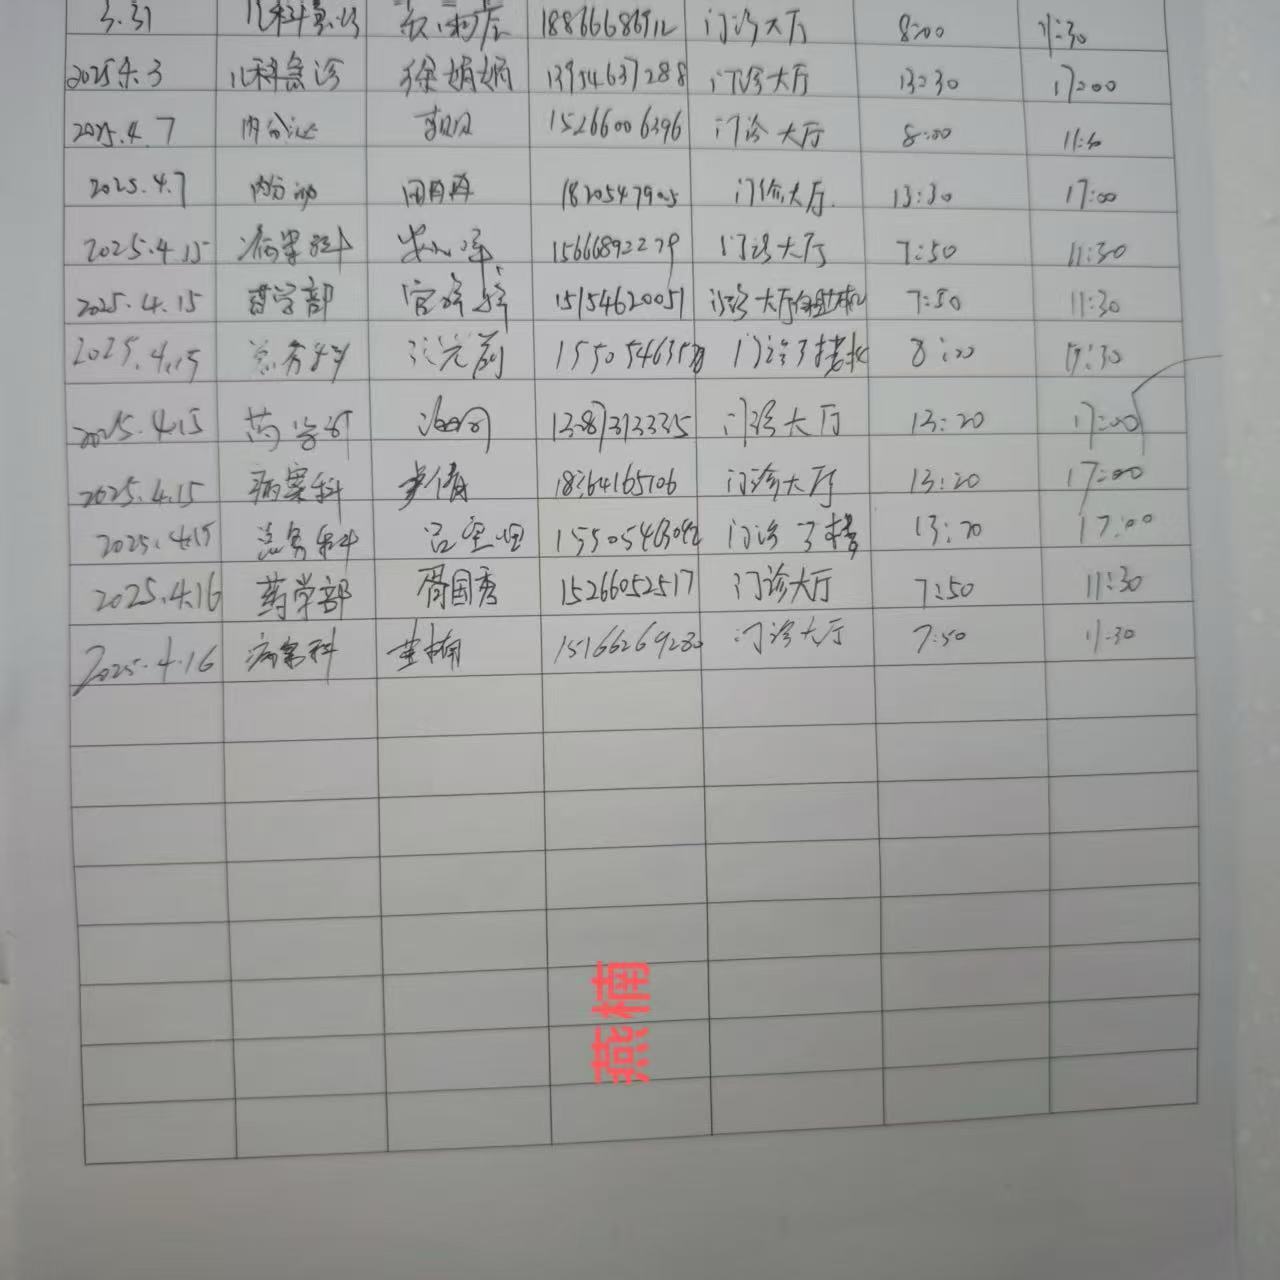 3.31 儿科急诊 18866686912 门诊大厅 8:00 11:30
2025.4.3 儿科急诊 徐娟娟 13954637288 门诊大厅 13:30 17:00
2025.4.7 内分泌 15266006396 门诊大厅 8:00 11:30
2025.4.7 内分泌 田冉冉 门诊大厅 13:30 17:00
2025.4.15 病案科 15666892279 门诊大厅 7:50 11:30
2025.4.15 药学部 15154620051 门诊大厅自助机 7:50 11:30
2025.4.15 总务科 8:00
2025.4.15 药学部 门诊大厅 13:20 17:00
2025.4.15 病案科 18364165106 门诊大厅 13:20 17:00
2025.4.15 总务科 门诊 13:20 17:00
2025.4.16 药学部 胥国秀 15266052517 门诊大厅 7:50 11:30
2025.4.16 病案科 15166269280 门诊大厅 7:50 11:30
燕楠